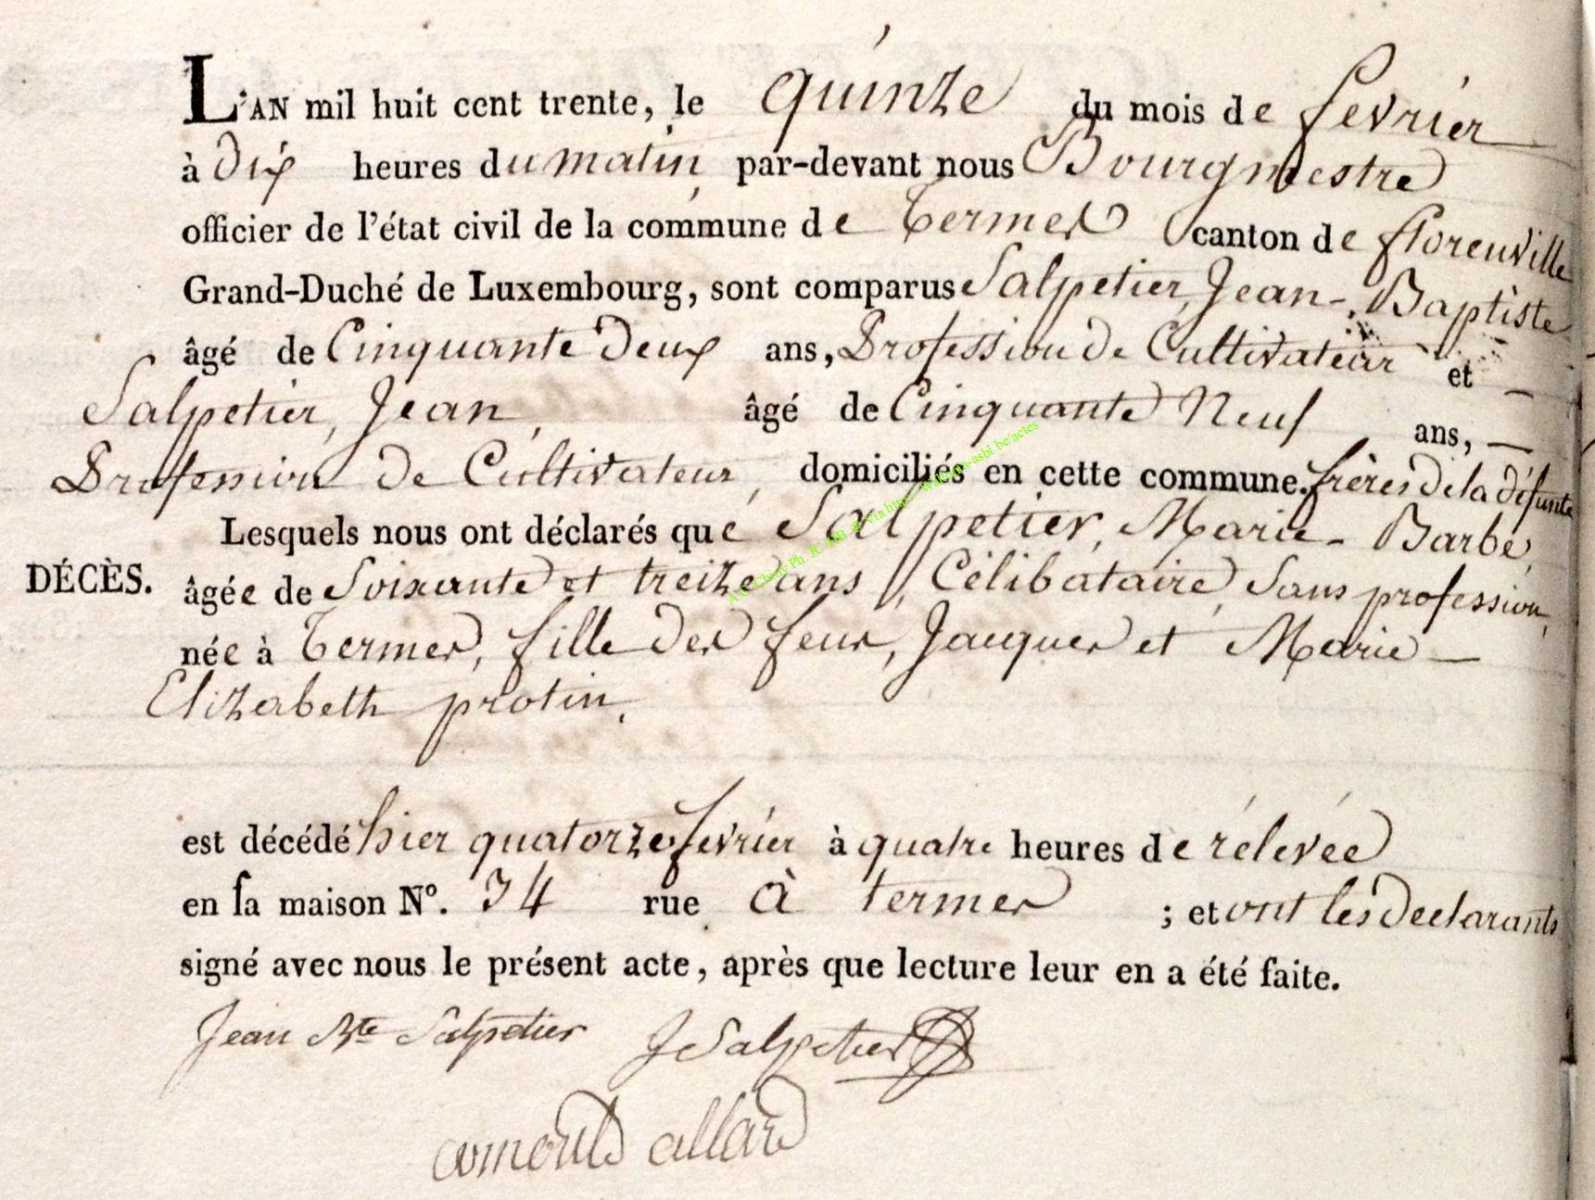 L'AN mil huit cent trente, le quinze du mois de fevrier
à dix heures du matin par-devant nous Bourgmestre
officier de l'état civil de la commune de Termes canton de florenville
Grand-Duché de Luxembourg, sont comparus Salpetier, Jean-Baptiste
âgé de Cinquante deux ans, Profession de Cultivateur et
Salpetier, Jean, âgé de Cinquante Neuf ans,
Profession de Cultivateur, domiciliés en cette commune. frères de la défunte
Lesquels nous ont déclarés que Salpetier, Marie-Barbe,
DÉCÈS. âgée de Soixante et treize ans, Célibataire, Sans profession,
née à Termes, fille des feus, Jacques et Marie
Elizabeth protin.
est décédé hier quatorze fevrier à quatre heures de rélevée
en sa maison N°. 34 rue à termes ; et ont les declarants
signé avec nous le présent acte, après que lecture leur en a été faite.
Jean Bte Salpetier J Salpetier
arnould allard